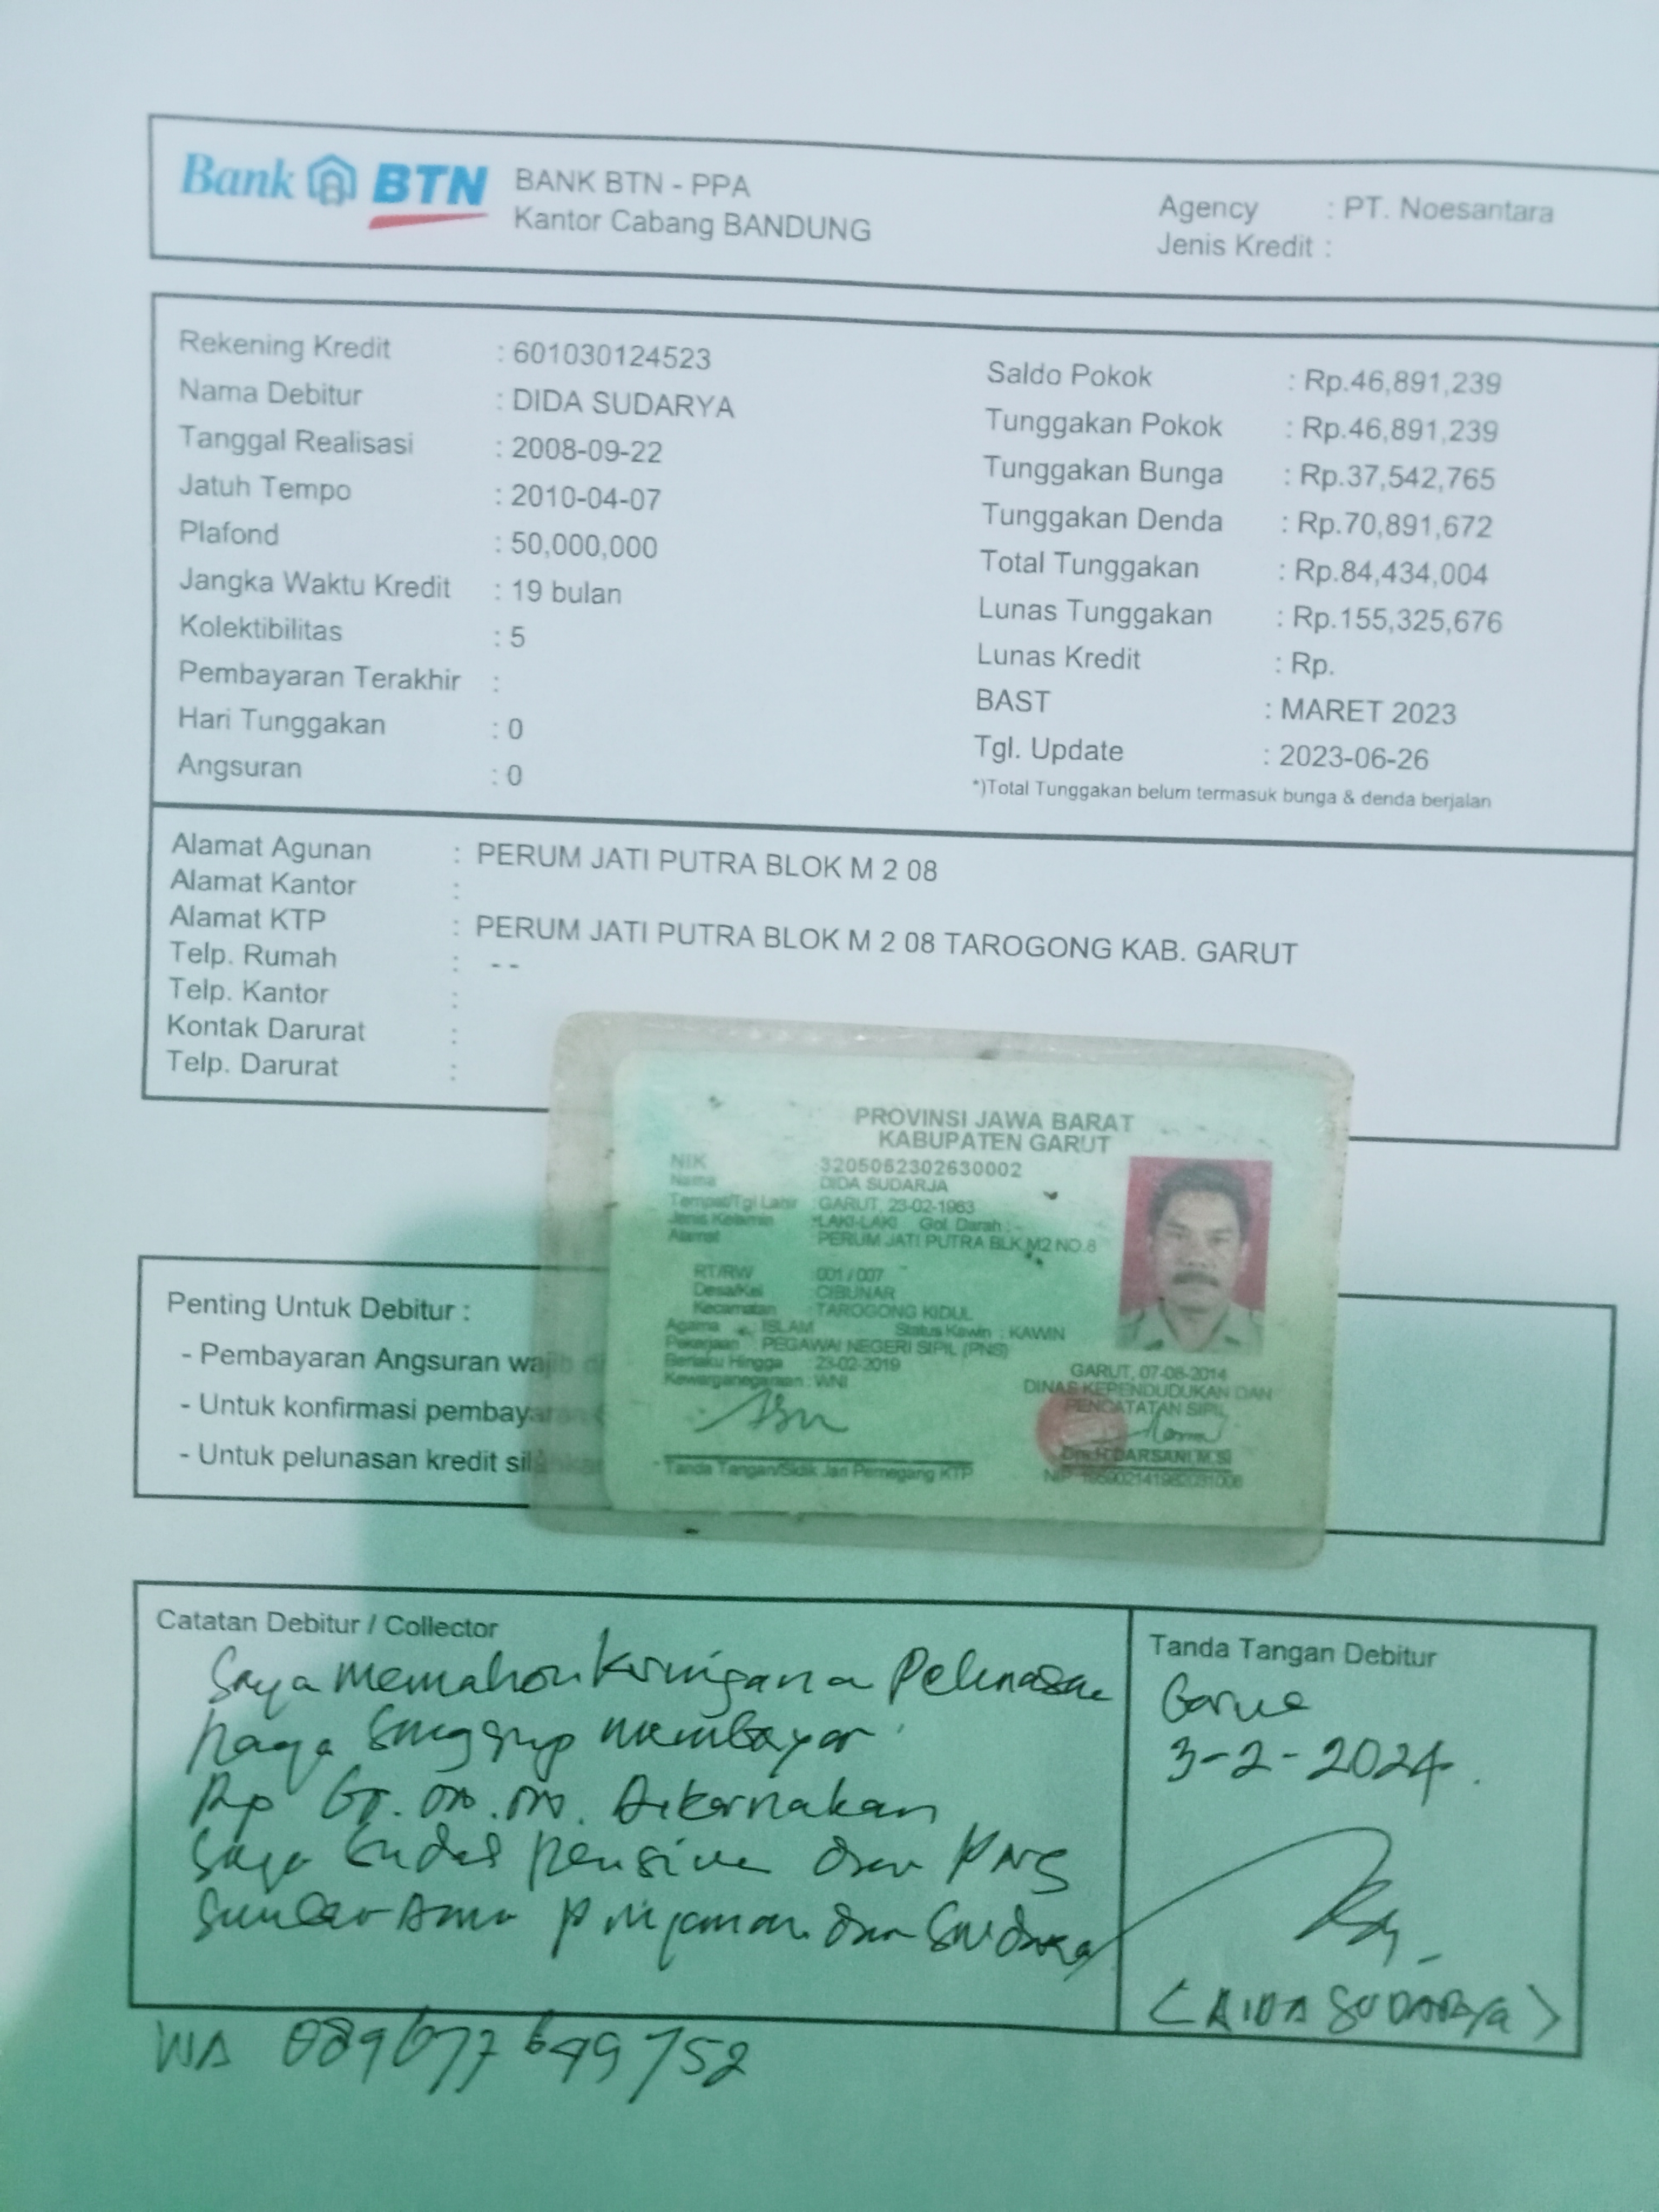 Bank BTN
BANK BTN - PPA
Kantor Cabang BANDUNG
Agency : PT. Noesantara
Jenis Kredit :
Rekening Kredit : 601030124523
Nama Debitur : DIDA SUDARYA
Tanggal Realisasi : 2008-09-22
Jatuh Tempo : 2010-04-07
Plafond : 50,000,000
Jangka Waktu Kredit : 19 bulan
Kolektibilitas : 5
Pembayaran Terakhir :
Hari Tunggakan : 0
Angsuran : 0
Saldo Pokok : Rp.46,891,239
Tunggakan Pokok : Rp.46,891,239
Tunggakan Bunga : Rp.37,542,765
Tunggakan Denda : Rp.70,891,672
Total Tunggakan : Rp.84,434,004
Lunas Tunggakan : Rp.155,325,676
Lunas Kredit : Rp.
BAST : MARET 2023
Tgl. Update : 2023-06-26
*)Total Tunggakan belum termasuk bunga & denda berjalan
Alamat Agunan : PERUM JATI PUTRA BLOK M 2 08
Alamat Kantor :
Alamat KTP : PERUM JATI PUTRA BLOK M 2 08 TAROGONG KAB. GARUT
Telp. Rumah : - -
Telp. Kantor :
Kontak Darurat :
Telp. Darurat :
PROVINSI JAWA BARAT
KABUPATEN GARUT
NIK : 3205052302630002
Nama : DIDA SUDARJA
Tempat/Tgl Lahir : GARUT, 23-02-1963
Jenis Kelamin : LAKI-LAKI Gol. Darah : -
Alamat : PERUM JATI PUTRA BLK M2 NO.8
RT/RW : 001 / 007
Desa/Kel : CIBUNAR
Kecamatan : TAROGONG KIDUL
Agama : ISLAM Status Kawin : KAWIN
Pekerjaan : PEGAWAI NEGERI SIPIL (PNS)
Berlaku Hingga : 23-02-2019
Kewarganegaraan : WNI
GARUT, 07-08-2014
DINAS KEPENDUDUKAN DAN
PENCATATAN SIPIL
DARSANI, M.Si
Tanda Tangan/Sidik Jari Pemegang KTP
Penting Untuk Debitur :
- Pembayaran Angsuran wajib
- Untuk konfirmasi pembayaran
- Untuk pelunasan kredit silahkan
Catatan Debitur / Collector
Saya memohon keringanan Pelunasan
hanya sanggup membayar
Rp Dikarnakan
Saya sudah pensiun dan PNS
Sumber dana pinjaman dan Saudara
Tanda Tangan Debitur
Garut
3-2-2024.
SUDARYA)
WA 089677699752